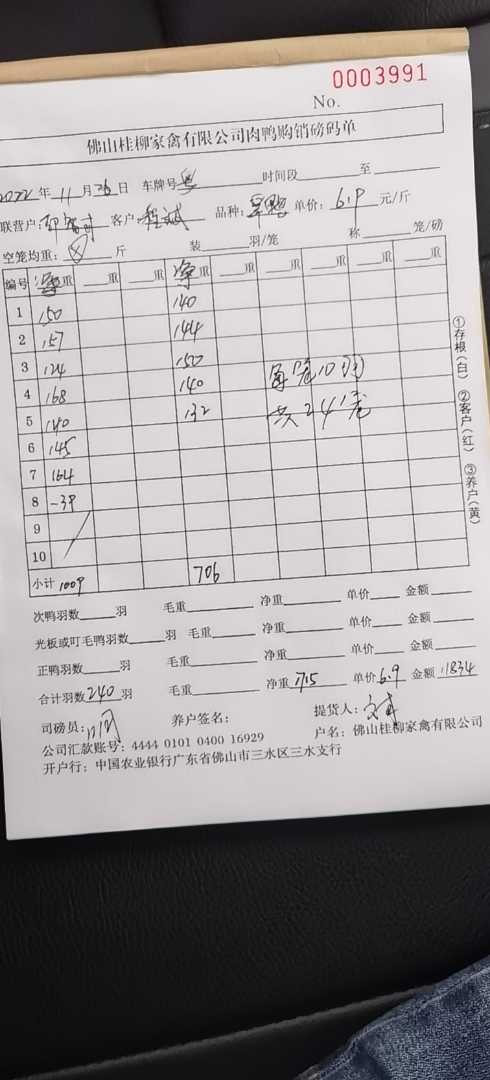 0003991
No.
佛山桂柳家禽有限公司肉鸭购销磅码单
2022年11月26日 车牌号 时间段 至
联营户: 客户:程斌 品种: 单价:6.9元/斤
空笼均重: 斤 装 羽/笼 称 笼/磅
编号 净重 重 重 净重 重 重 重 重 重
1 150 140
2 157 144
3 124 150
4 168 140 每笼10羽
5 140 132 共24笼
6 145
7 164
8 -39
9
10
小计 1009 706
次鸭羽数 羽 毛重 净重 单价 金额
光板或叮毛鸭羽数 羽 毛重 净重 单价 金额
正鸭羽数 羽 毛重 净重 单价 金额
合计羽数240羽 毛重 净重1715 单价6.9 金额11834
司磅员: 养户签名: 提货人:
公司汇款账号:4444 0101 0400 16929 户名:佛山桂柳家禽有限公司
开户行:中国农业银行广东省佛山市三水区三水支行
①存根(白) ②客户(红) ③养户(黄)